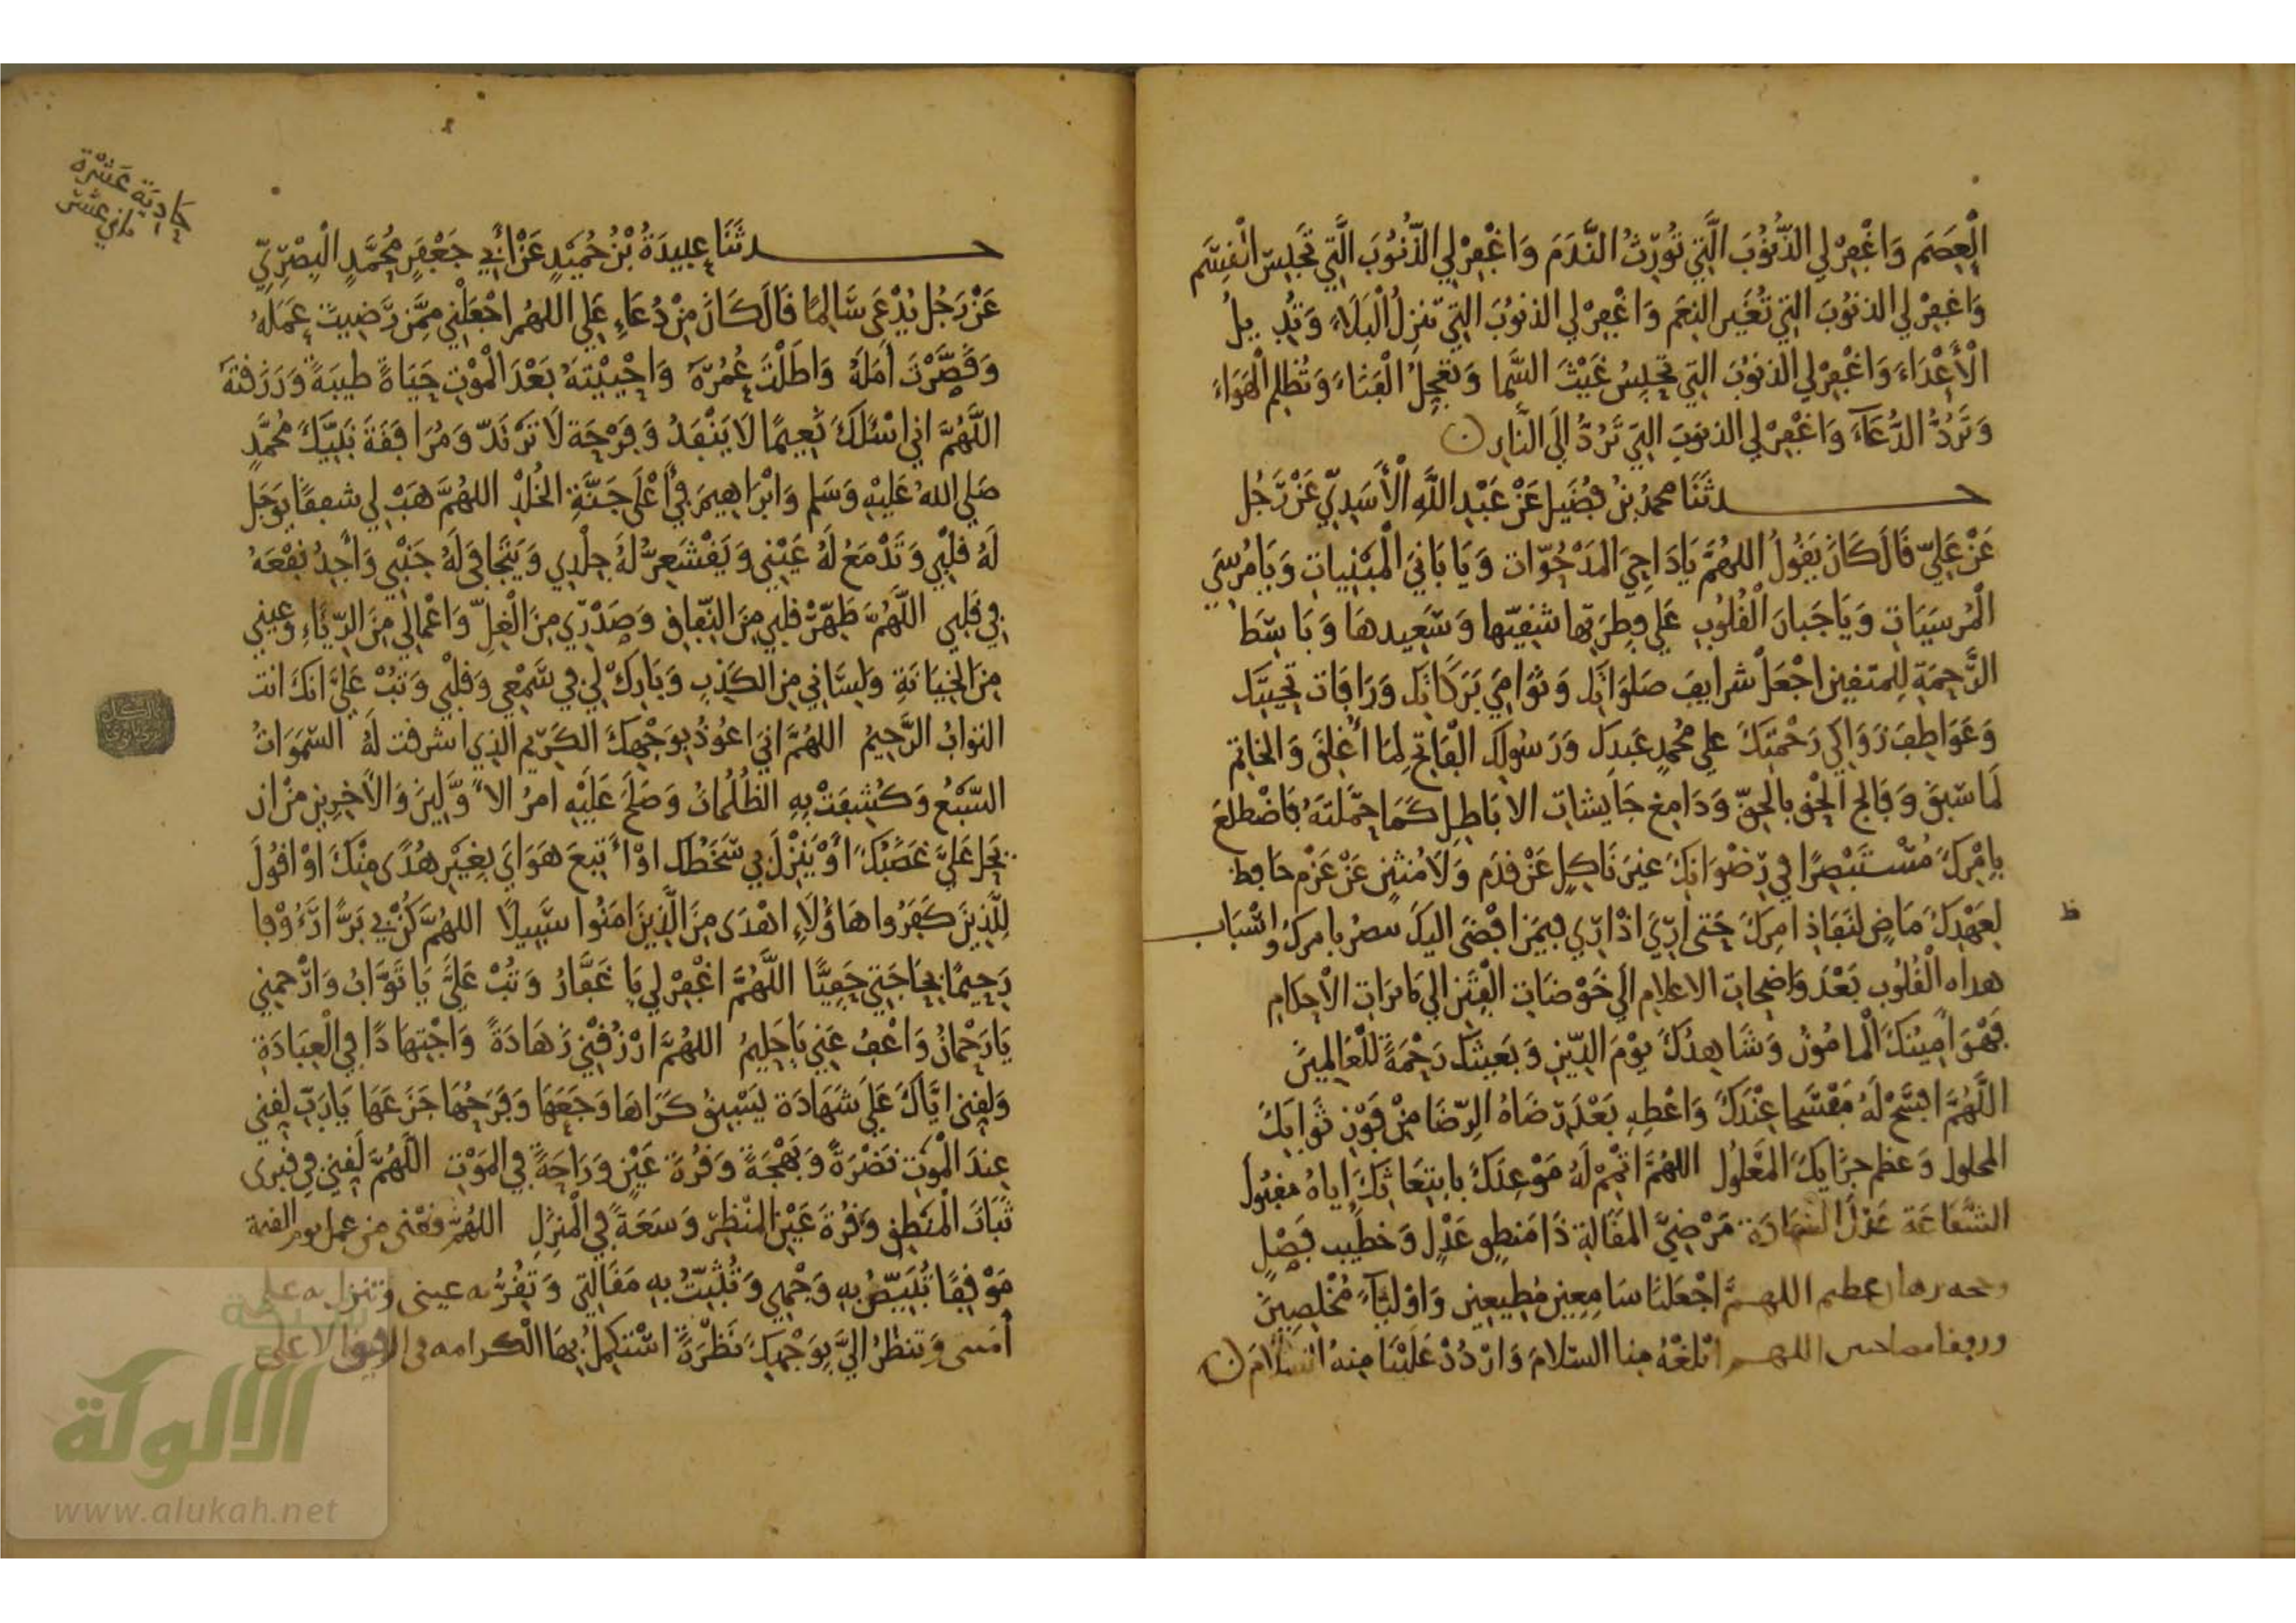 الْعِصَم وَاغْفِرْ لِي الذُّنُوبَ الَّتِي تُورِثُ النَّدَمَ وَاغْفِرْ لِي الذُّنُوبَ الَّتِي تَحْبِسُ الْقِسَم
وَاغْفِرْ لِي الذنوُبَ التِي تُغَيِّر النِعَم وَاغْفِرْ لِي الذنوُبَ التِي تنزِلُ الْبَلَاءَ وَتُدِيلُ
الْأَعْدَاءَ وَاغْفِرْ لِي الذنوُبَ التِي تحْبِسُ غَيْثَ السَّمَا وَتعَجِلُ الْفَنَاءَ وَتُظْلِم الْهَوَاءَ
وَتَرُدُّ الدُّعَآءَ وَاغْفِرْ لِي الذنوبَ التِي تَرُدُّ إلَى النَّارِ
حدثَنَا محمدُ بنُ فُضَيل عَنْ عَبْدِ اللَّهِ الْأَسَدِيّ عَنْ رَجُل
عَنْ عَلِيّ قَالَ كَانَ يَقُولُ اللهُمَّ يَا دَاحِيَ المَدْحُوّات وَيَا بَانيَ الْمَبْنِيات وَيَا مُرْسِيَ
الْمُرسَيَات وَيَا جَبار الْقُلُوب عَلَى فِطرَتِها شقِيّها وَسَعِيدهَا وَبَاسِطَ
الرَّحْمَةِ لِلمتقين اجْعَلْ شرايفَ صَلَوَاتِك وَنَوَامِيَ بَرَكَاتك وَرَافَات تَحِيتك
وَعَوَاطِفَ زَوَاكِي رَحْمَتِكَ علي مُحمدٍ عَبدك وَرَسُولك الْفَاتح لِمَا أُغْلِقَ وَالخاتم
لمَا سَبقَ وَفَالج الحْق بِالحَقّ وَدَامغ جَايشات الاباطِل كَمَا حَمَّلتَهُ فَاضْطلعَ
بِامْرِكَ مُسْتَبْصِرًا في رِضْوَانِكَ غيرَ نَاكِلٍ عَنْ قدَم وَلَا مُنثنٍ عَنْ عَزْم حَافِظ
لِعَهْدِكَ مَاضٍ لنَفَاذِ امرِكَ حَتى أرَيَ اذْ ارَي فِيمَن افْضَى اليكَ بامرك واسْبَاب
ظ
هداه الْقُلُوب بَعْدَ وَاضِحات الاعلام الي خَوْضَات الْفِتَن الي الأحكام
فَهْوَ امِينُكَ الْمامُونُ وَشَاهِدُكَ يَوْمَ الدِّينِ وَبَعِيثك رَحْمَةً لِلْعَالَمِينَ
اللَّهُمَّ افسَحْ لَهُ مَفْسَحا عِنْدَكَ وَاعْطِهِ بَعْدَ رِضَاهُ الرِّضَا مِنْ فَوْزِ ثَوَابكَ
المحلول وَعظم جزَايكَ المَعْلُول اللهُمَّ اتْمِمْ لَهُ مَوْعِدَكَ بابتِعَاثِكَ إياهُ مقبُولَ
الشَّفَاعَة عَدْلَ الشهادة مَرْضِيَّ المَقَالة ذَا مَنطِقٍ عَدْلٍ وَخطيب فَصْلٍ
عظيم اللهمَّ اجْعَلنَا سَامِعِين مُطِيعِين وَاوْليَآءَ مُخْلِصِينَ
ورفقا مصاحبين اللهم ابْلغْهُ مِنا السلامَ وَارْدُدْ عَلَيْنَا مِنهُ السَّلامَ
حَادِيَة عَشْرَة
حدثَنَا عَبِيدَةُ بْنُ حُمَيْدٍ عَنْ أَبِي جَعْفَرٍ مُحَمَّدٍ الْبصْرِيّ
عَنْ رَجُلٍ يُدْعَى سَالِمًا قَالَ كَانَ مِنْ دُعَاءِ عَلِي اللهُم اجْعَلْنِي مِمَّن رَضِيتَ عَمَلَهُ
وَقَصَّرْتَ أَمَلَهُ وَاطَلْتَ عُمُرَهُ وَاحْيَيْتَهُ بَعْدَ الْمَوْتِ حَيَاةً طيبَةً وَرَزَقتَهُ
اللَّهُمَّ اني اسْئلكَ نَعِيمًا لَا يَنْفَدُ وَفرْحَة لَا تَرْتَدّ وَمُرَافقَةَ نَبيَّكَ مُحَمَّدٍ
صَلي اللهُ عَلَيْهِ وَسَلم وَابْرَاهيمَ فِي أَعْلَى جَنَّةِ الخُلدْ اللهُمَّ هَبْ لي شفقًا يَوْجَلُ
لَهُ قَلْبِي وَتَدْمَعُ لَهُ عَيْنِي وَيَقْشَعِرُّ لَهُ جِلْدِي وَيَتَجَافى لَهُ جَنْبِي وَأَجِدُ نفْعَهُ
فِي قَلْبِي اللَّهُمَّ طَهِّرْ قَلْبِي مِنَ النِّفَاقِ وَصَدْرِي مِنَ الْغِلِّ وَاعْمَالِي مِنَ الرِّيَاءِ وَعيني
مِنَ الخِيَانَةِ وَلِسَاني مِن الكَذِبِ وَبَارِكْ لِي فِي سَمْعِي وَقَلْبِي وَتُبْ عَلَيَّ انكَ انت
التوابُ الرَّحِيمُ اللهُمَّ انيَ اعُوذُ بِوَجْهِكَ الكَرِيم الذِي اشرقت لَهُ السّمَوَاتُ
السّبْعُ وَكُشِفَتْ بِهِ الظُلُمَاتُ وَصَلَحَ عَلَيْهِ امرُ الأوَّلِينَ وَالاخِرِينَ مِنْ ان
يَحِلّ عَلَيَّ غَضَبُكَ أَوْ يَنْزلَ بي سَخَطُك اوْ أتبِعَ هَوَايَ بِغَيْرِ هُدًى مِنْكَ اوْ اقُولَ
لِلَّذِينَ كَفَرُوا هَاؤُلَاءِ اهْدَى مِنَ الَّذِينَ امَنُوا سَبِيلًا اللهُمَّ كُنْ بِي بَرًّا رَءُوْفا
رَحِيمًا بِحَاجَتِي حَفِيًّا اللَّهُمَّ اغْفِرْ لِي يَا غَفَّارُ وَتُبْ عَلَيَّ يَا تَوَّابُ وَارْحَمنِي
يَا رَحْمَانُ وَاعْفُ عَنِي يَا حَلِيمُ اللهُمَّ ارْزُقْنِي زَهَادَةً وَاجْتِهَادًا فِي الْعِبَادَةِ
وَلقِنِي ايَّاكَ عَلَى شَهَادَة يَسْبِقُ وَجَعَهَا وَفَرَحُهَا جَزَعَهَا يَا رَبّ لقِنِي
عِندَ الْمَوْت نَضْرَةً وَبَهْجَةً وَقُرةَ عَيْنٍ وَرَاحَةً فِي المَوْتِ اللَّهُمَّ لَقِنِي فِي قبري
ثَبَاتَ الْمَنطِق وَقُرةَ عَيْن المَنْظَرِ وَسَعَةً فِي الْمَنْزِلِ اللهُمَّ
مَوْقِفًا تُبَيِّضُ بِهِ وَجْهِي وَتُثَبِّتُ بِهِ مَقَالَتِي وَتُقِرُّ به عيني وتنزل به علي
أمنتي وَتنظرُ اليَّ بِوَجْهِكَ نَظْرَةً اسْتكمِلُ بِهَا الْكرامه في الرفيق الاعلي
شبكة
الألوكة
www.alukah.net